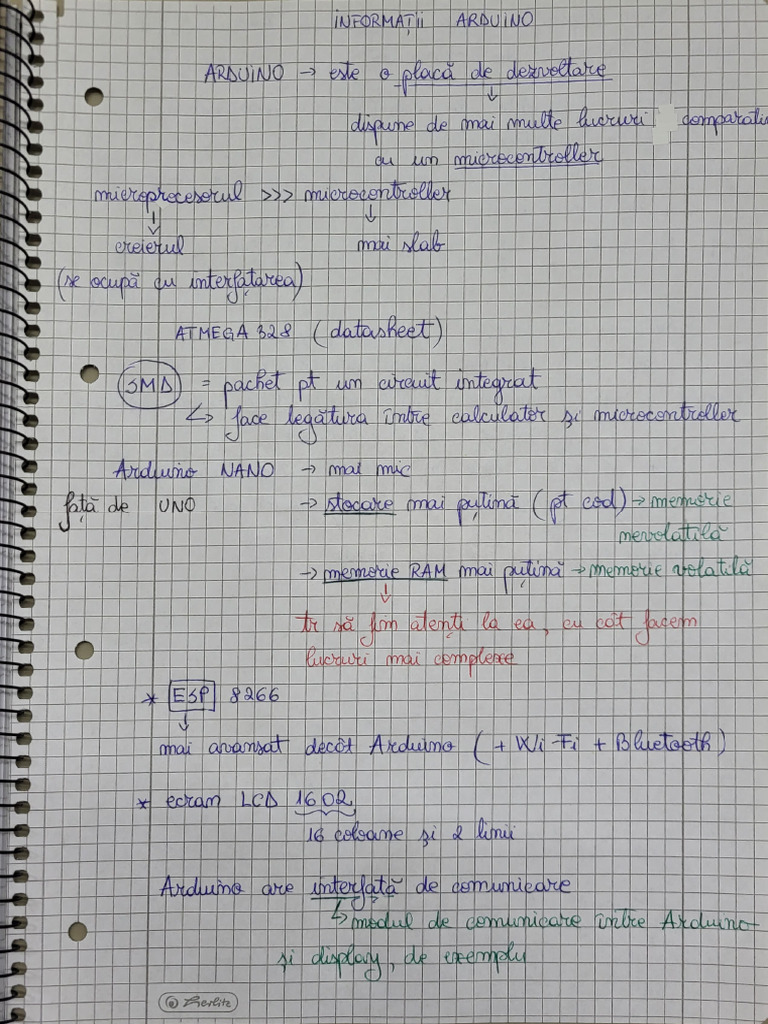 INFORMAȚII ARDUINO
ARDUINO → este o placă de dezvoltare
↓
dispune de mai multe lucruri comparativ
cu un microcontroller
microprocesorul >>> microcontroller
↓ ↓
creierul mai slab
(se ocupă cu interfațarea)
ATMEGA 328 (datasheet)
SMD = pachet pt un circuit integrat
↳ face legătura între calculator și microcontroller
Arduino NANO → mai mic
față de UNO → stocare mai puțină (pt cod) → memorie
nevolatilă
→ memorie RAM mai puțină → memorie volatilă
↓
tr să fim atenți la ea, cu cât facem
lucruri mai complexe
* ESP 8266
↓
mai avansat decât Arduino (+ Wi-Fi + Bluetooth)
* ecran LCD 1602
16 coloane și 2 linii
Arduino are interfață de comunicare
↳ modul de comunicare între Arduino
și display, de exemplu
Herlitz